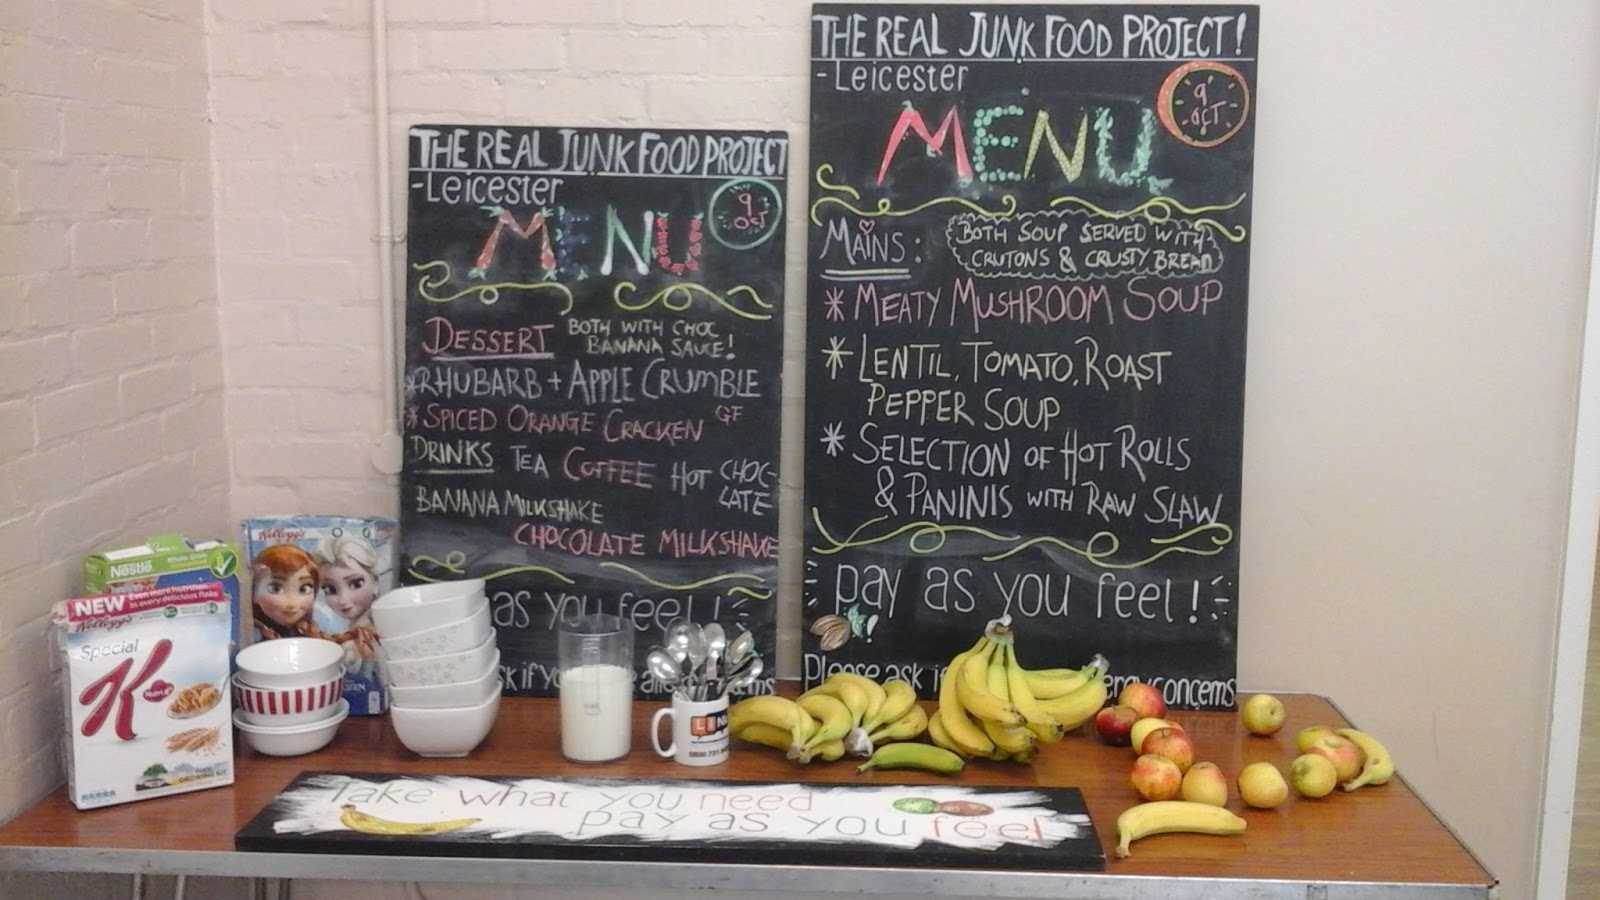 THE REAL JUNK FOOD PROJECT
-Leicester
MENU
9
OCT
DESSERT
BOTH WITH CHOC
BANANA SAUCE!
*RHUBARB + APPLE CRUMBLE
*SPICED ORANGE CRACKEN GF
DRINKS TEA COFFEE HOT CHOC-
LATE
BANANA MILKSHAKE
CHOCOLATE MILKSHAKE
as you feel!
THE REAL JUNK FOOD PROJECT!
-Leicester
9
OCT
MENU
MAINS:
BOTH SOUP SERVED WITH
CRUTONS & CRUSTY BREAD
* MEATY MUSHROOM SOUP
* LENTIL, TOMATO, ROAST
PEPPER SOUP
* SELECTION OF HOT ROLLS
& PANINIS WITH RAW SLAW
pay as you feel!
Please ask
concerns
Nestle
Kellogg's
NEW Even more nutrition
in every delicious flake
Kellogg's
Special
K
Take what you need
pay as you feel